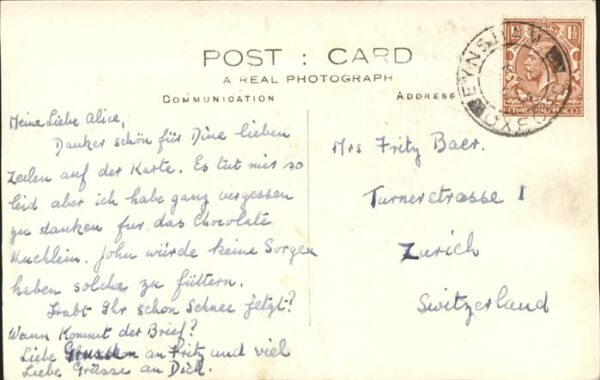 POST : CARD
A REAL PHOTOGRAPH
COMMUNICATION
ADDRESS
1½ 1½
EYNSHAM
OXFORD
Meine Liebe Alice,
Danker schön für Dine lieben
Zeilen auf der Karte. Es tut mir so
leid aber ich habe ganz vergessen
zu danken fur das Chocolate
Kuchlein. John würde keine Sorgen
haben solche zu füttern.
Habt Ihr schon Schnee jetzt?
Wann Kommt der Brief?
Liebe an Fritz und viel
Liebe Grüsse an Dich.
Mrs Fritz Baer.
Turnerstrasse 1
Zurich
Switzerland